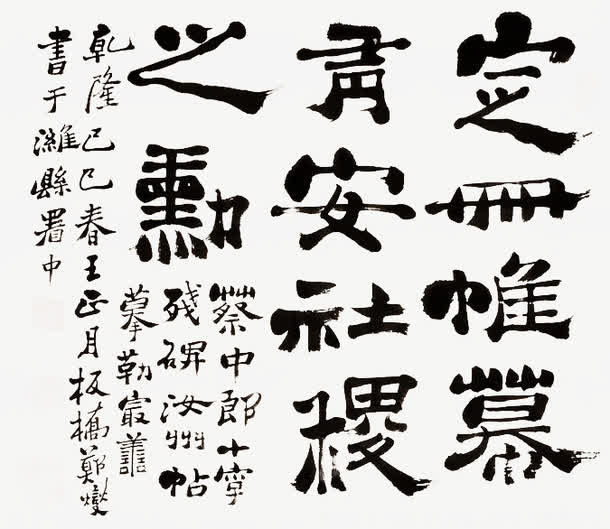 定冊帷幕
有安社稷
之勳
蔡中郎十字
殘碑汝州帖
摹勒冣譱
乾隆己巳春王正月板橋鄭燮
書于濰縣署中